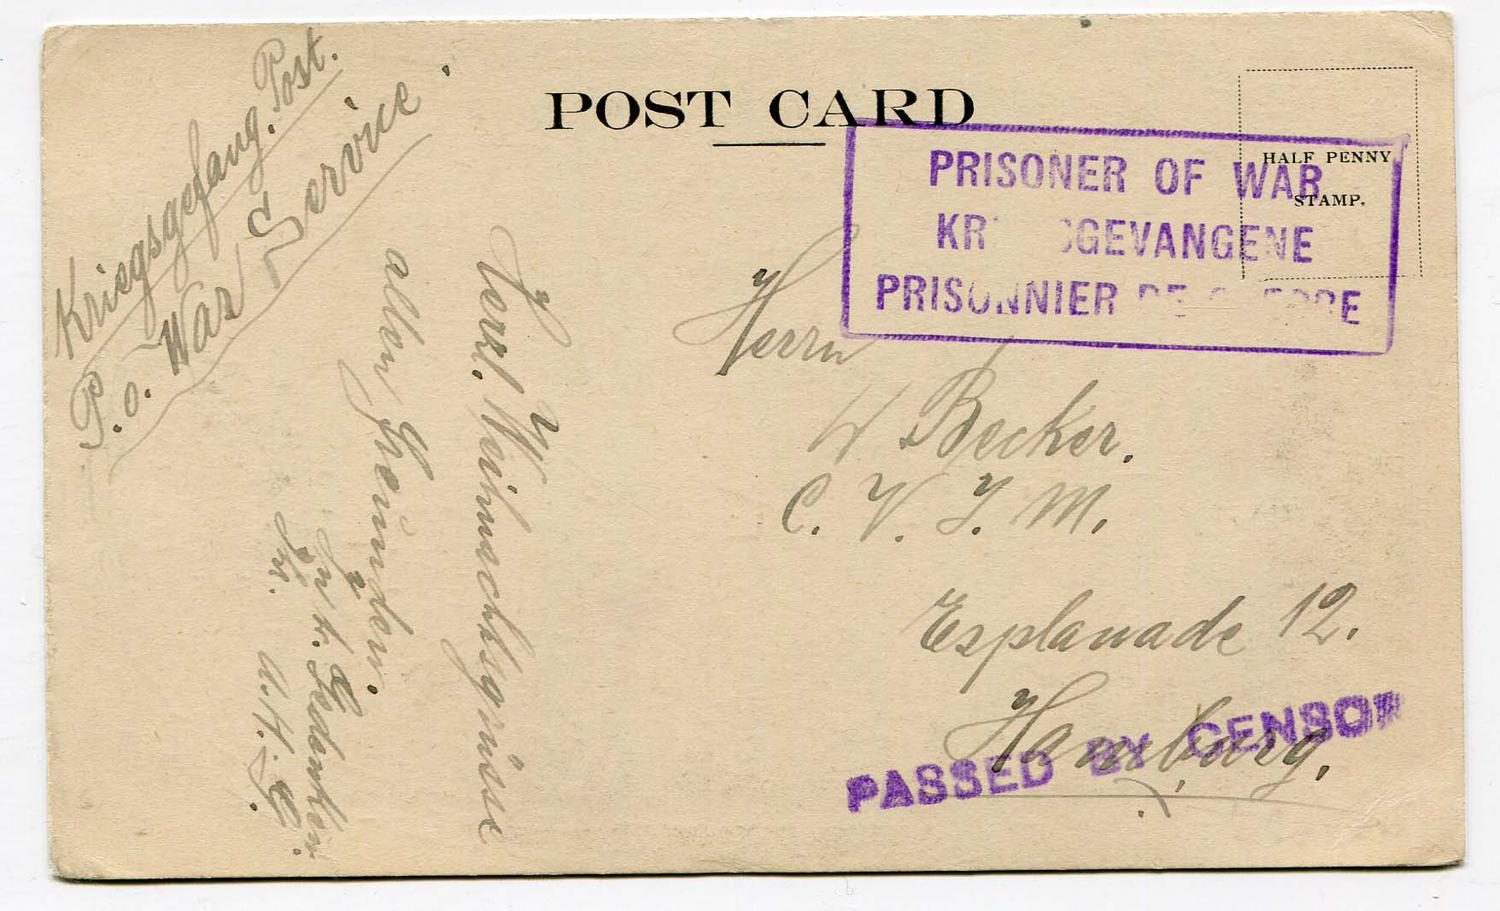 Kriegsgefang. Post.
P. o. War Service.
POST CARD
HALF PENNY
STAMP.
PRISONER OF WAR
KR SGEVANGENE
PRISONNIER DE G ERRE
Herzl. Weihnachtsgrüsse
allen Freunden.
In t. Gedenken
Ihr.
Herrn
W Becker.
C. V. J. M.
Esplanade 12.
Hamburg.
PASSED BY CENSOR